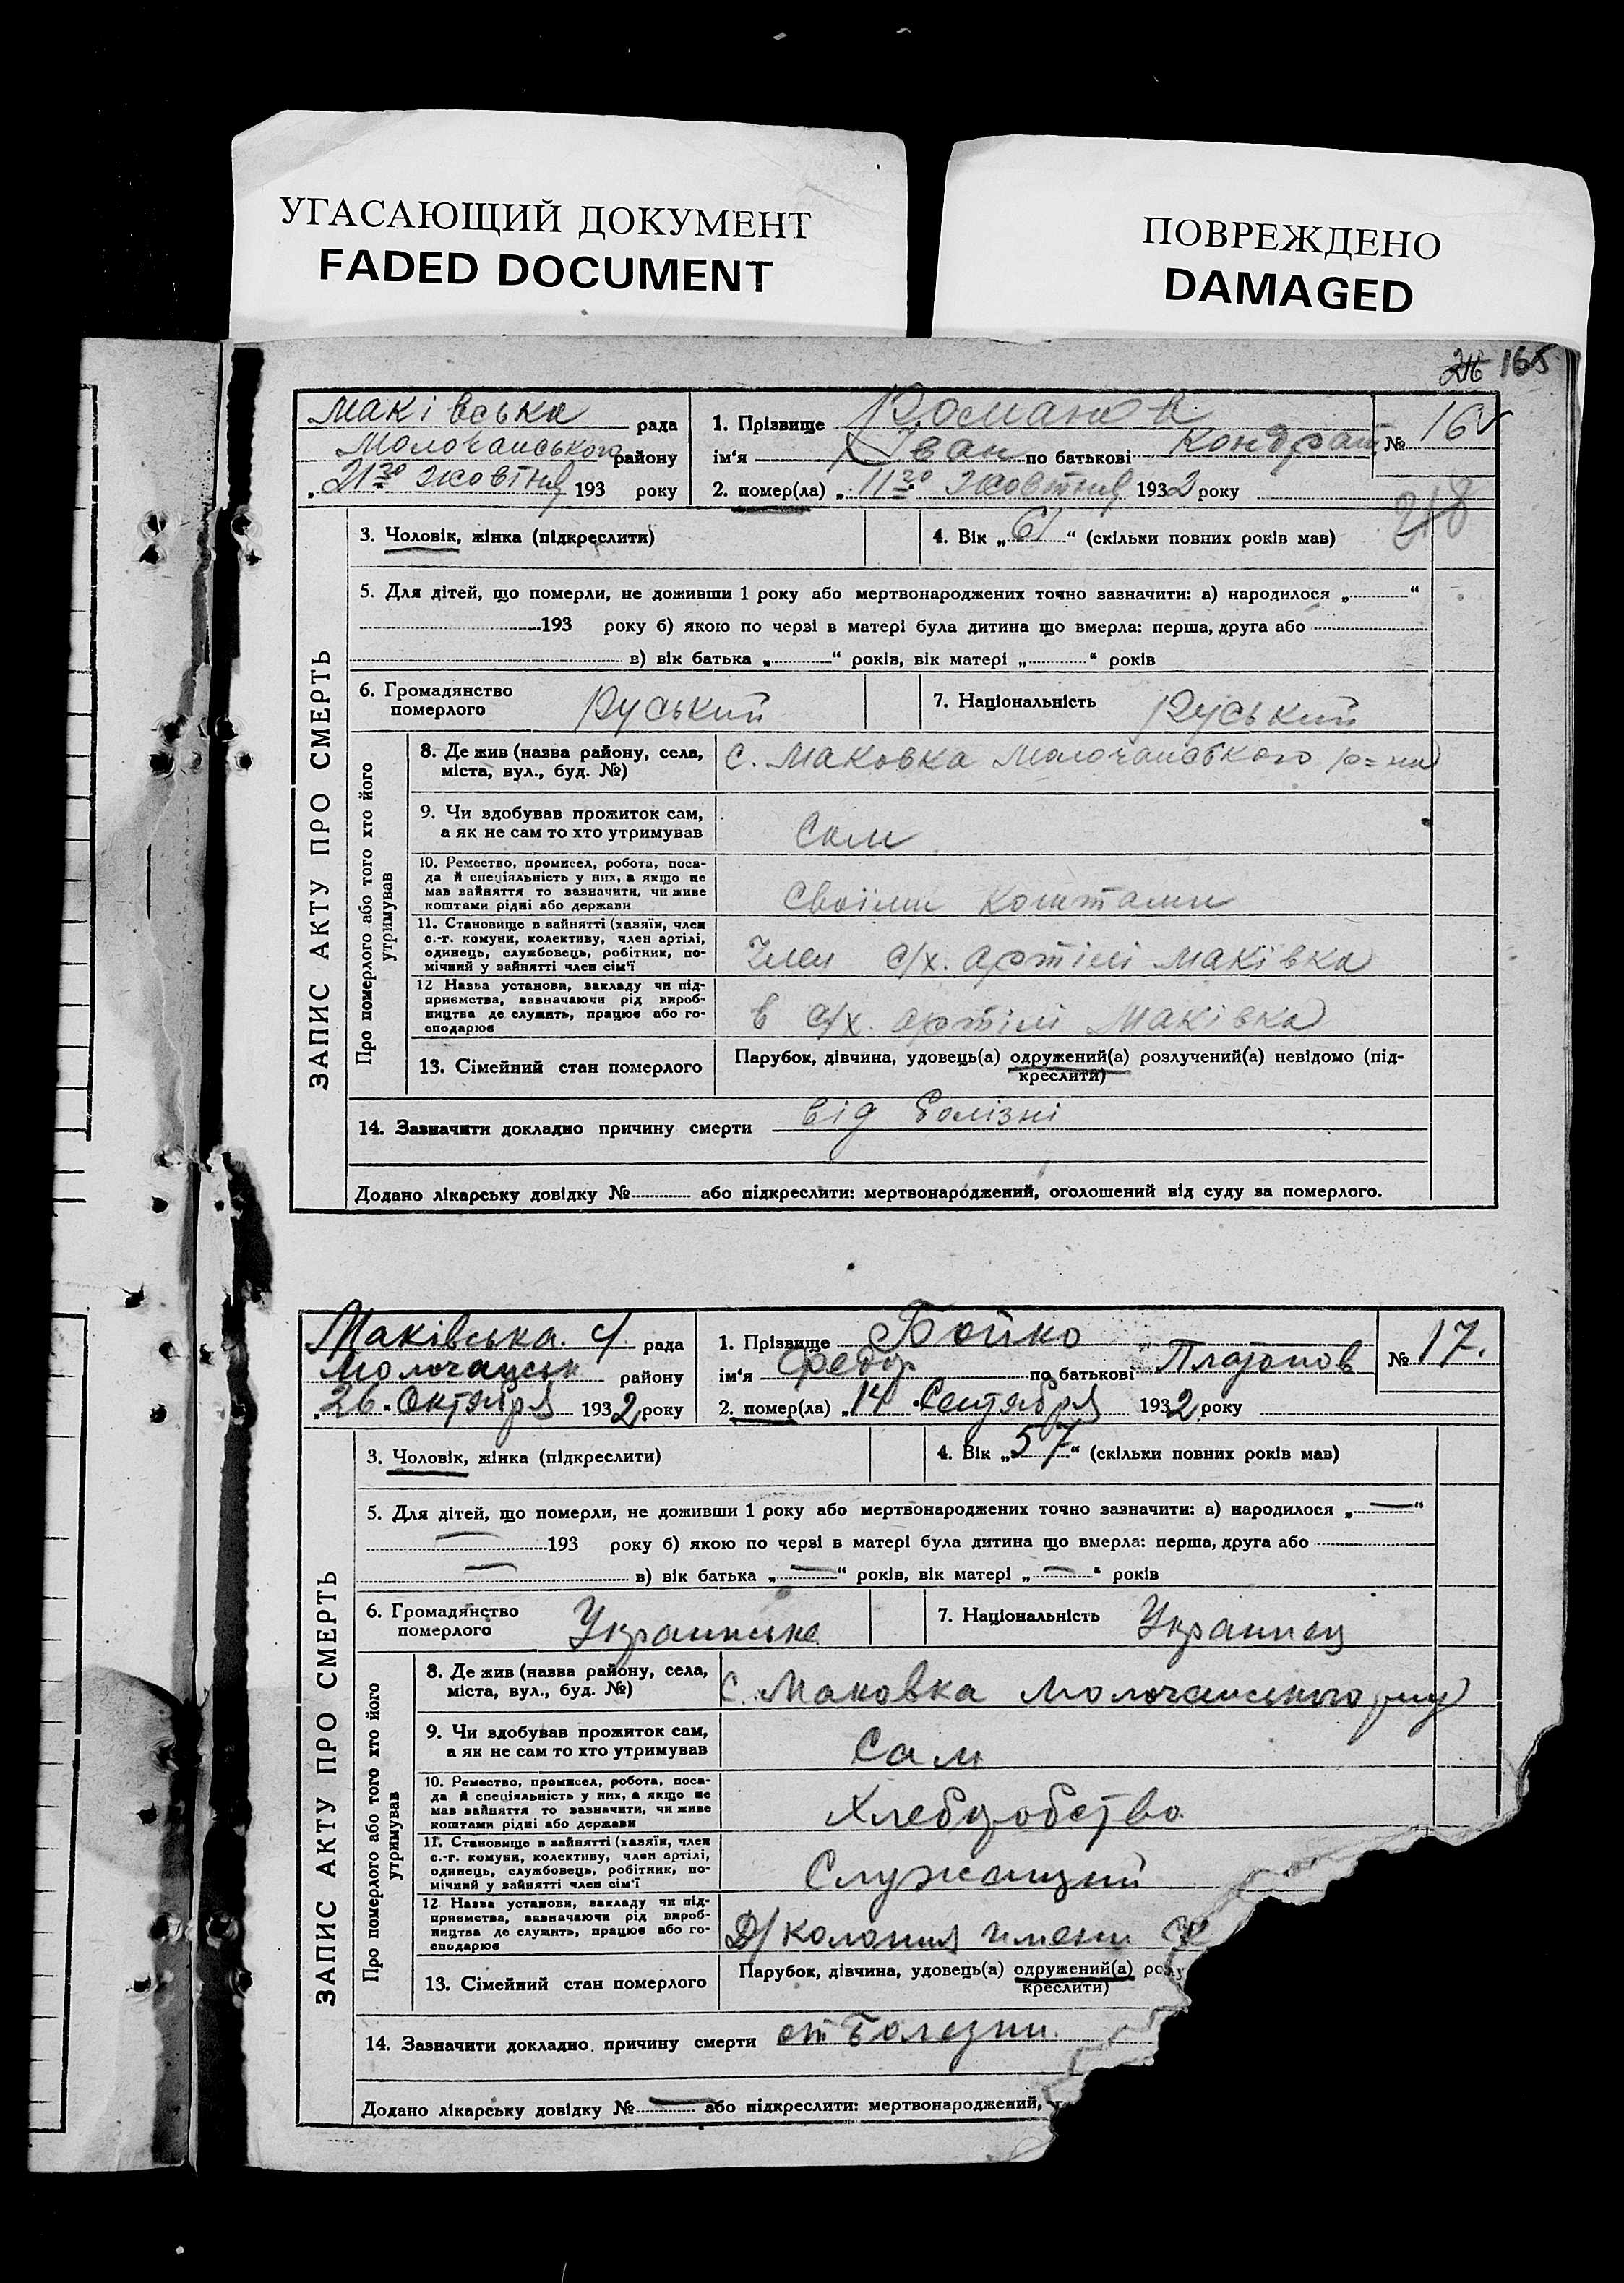 УГАСАЮЩИЙ ДОКУМЕНТ
FADED DOCUMENT
ПОВРЕЖДЕНО
DAMAGED
165
Маківська рада
Молочанського району
„21го Жовтня 193 року
1. Прізвище Романов
ім'я Іван по батькові Кондрат
2. помер(ла) „11го Жовтня 1932 року
№ 16
218
ЗАПИС АКТУ ПРО СМЕРТЬ
3. Чоловік, жінка (підкреслити)
4. Вік „61“ (скільки повних років мав)
5. Для дітей, що померли, не доживши 1 року або мертвонароджених точно зазначити: а) народилося „ “
193 року б) якою по черзі в матері була дитина що вмерла: перша, друга або
в) вік батька „ “ років, вік матері „ “ років
6. Громадянство
померлого
Руський
7. Національність Руський
Про померлого або того хто його
утримував
8. Де жив (назва району, села,
міста, вул., буд. №)
С. Маковка Молочанського р=на
9. Чи вдобував прожиток сам,
а як не сам то хто утримував
Сам
10. Ремество, промисел, робота, поса-
да й спеціяльність у них, а якщо не
мав зайняття то зазначити, чи живе
коштами рідні або держави
Своіми коштами
11. Становище в зайнятті (хазяїн, член
с.-г. комуни, колективу, член артілі,
одинець, службовець, робітник, по-
мічний у зайнятті член сім'ї
Член с/х. артілі Маківка
12 Назва установи, закладу чи під-
приємства, зазначаючи рід вироб-
ництва де служить, працює або го-
сподарює
в с/х. артілі Маківка
13. Сімейний стан померлого
Парубок, дівчина, удовець(а) одружений(а) розлучений(а) невідомо (під-
креслити)
14. Зазначити докладно причину смерти від болізні
Додано лікарську довідку № або підкреслити: мертвонароджений, оголошений від суду за померлого.
Маківська с/ рада
Молочанськ району
„26 „ Октября 1932 року
1. Прізвище Бойко
ім'я Федор по батькові Платонов
2. помер(ла) „14 Сентября 1932 року
№ 17.
ЗАПИС АКТУ ПРО СМЕРТЬ
3. Чоловік, жінка (підкреслити)
4. Вік „57“ (скільки повних років мав)
5. Для дітей, що померли, не доживши 1 року або мертвонароджених точно зазначити: а) народилося „—“
— 193 року б) якою по черзі в матері була дитина що вмерла: перша, друга або
— в) вік батька „—“ років, вік матері „—“ років
6. Громадянство
померлого
Украинське
7. Національність Украинец
Про померлого або того хто його
утримував
8. Де жив (назва району, села,
міста, вул., буд. №)
С. Маковка Молочанського
9. Чи вдобував прожиток сам,
а як не сам то хто утримував
Сам
10. Ремество, промисел, робота, поса-
да й спеціяльність у них, а якщо не
мав зайняття то зазначити, чи живе
коштами рідні або держави
Хлеборобство
11. Становище в зайнятті (хазяїн, член
с.-г. комуни, колективу, член артілі,
одинець, службовець, робітник, по-
мічний у зайнятті член сім'ї
Служащий
12 Назва установи, закладу чи під-
приємства, зазначаючи рід вироб-
ництва де служить, працює або го-
сподарює
Д/колония имени
13. Сімейний стан померлого
Парубок, дівчина, удовець(а) одружений(а) роз
креслити)
14. Зазначити докладно причину смерти от Болезни.
Додано лікарську довідку № — або підкреслити: мертвонароджений,